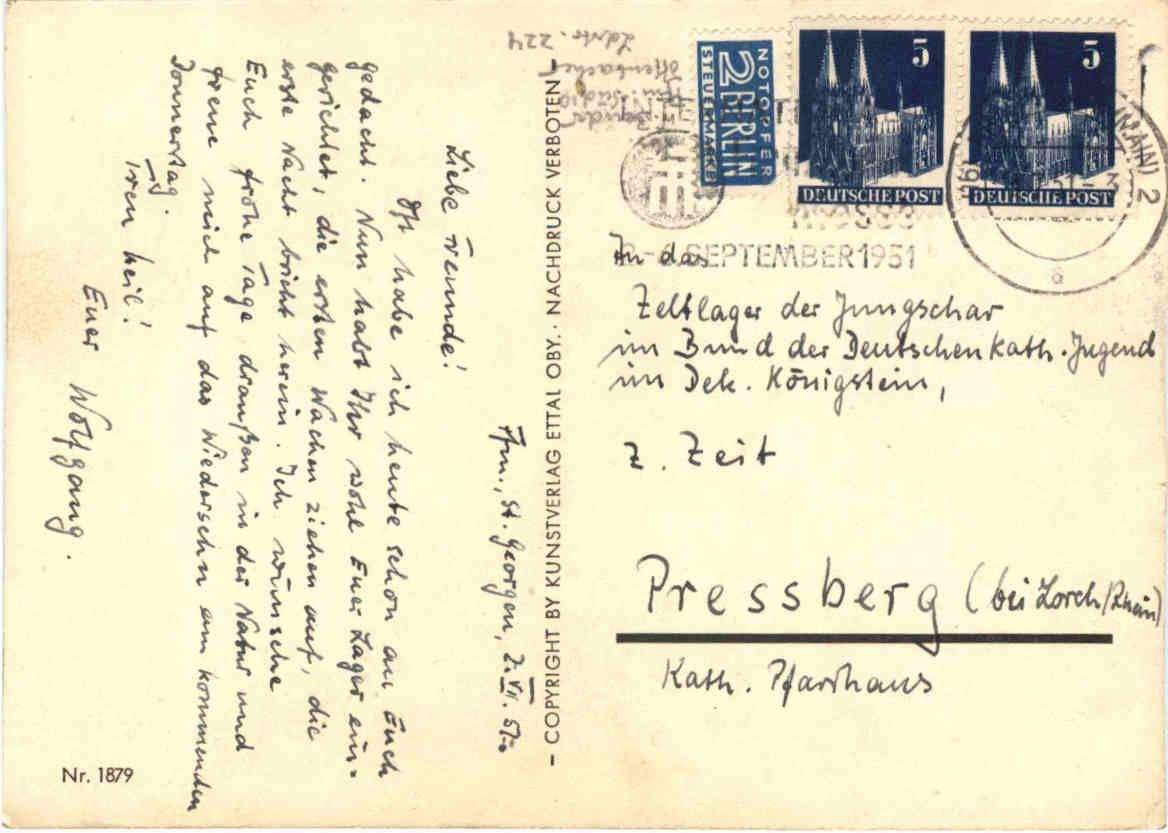 Ffm., St. Georgen, 2. VII. 51.
Liebe Freunde!
Oft habe ich heute schon an Euch
gedacht. Nun habt Ihr wohl Euer Lager ein-
gerichtet, die ersten Wachen ziehen auf, die
erste Nacht bricht herein. Ich wünsche
Euch frohe Tage draußen in der Natur und
freue mich auf das Wiedersehn am kommenden
Donnerstag.
Treu heil!
Euer Wolfgang.
Nr. 1879
– COPYRIGHT BY KUNSTVERLAG ETTAL OBY. NACHDRUCK VERBOTEN –
Offenbacher
Ldstr. 224
NOTOPFER
2 BERLIN
STEUERMARKE
5
DEUTSCHE POST
5
DEUTSCHE POST
(MAIN) 2
SEPTEMBER 1951
An das
Zeltlager der Jungschar
im Bund der Deutschen Kath. Jugend
im Dek. Königstein,
z. Zeit
Pressberg (bei Lorch/Rhein)
Kath. Pfarrhaus